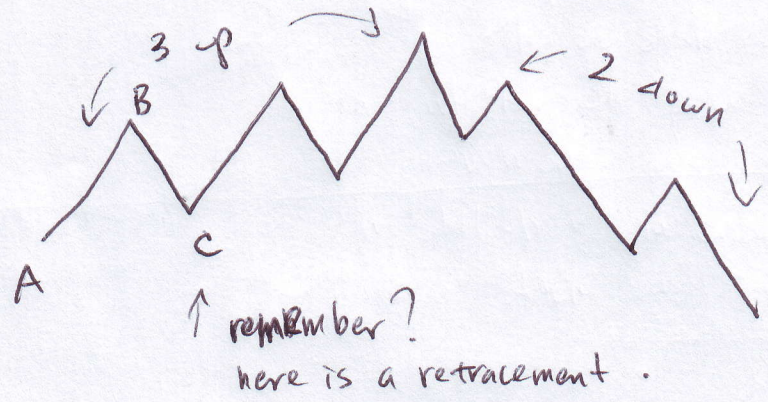 3 up
2 down
B
C
A
↑ remember?
here is a retracement.